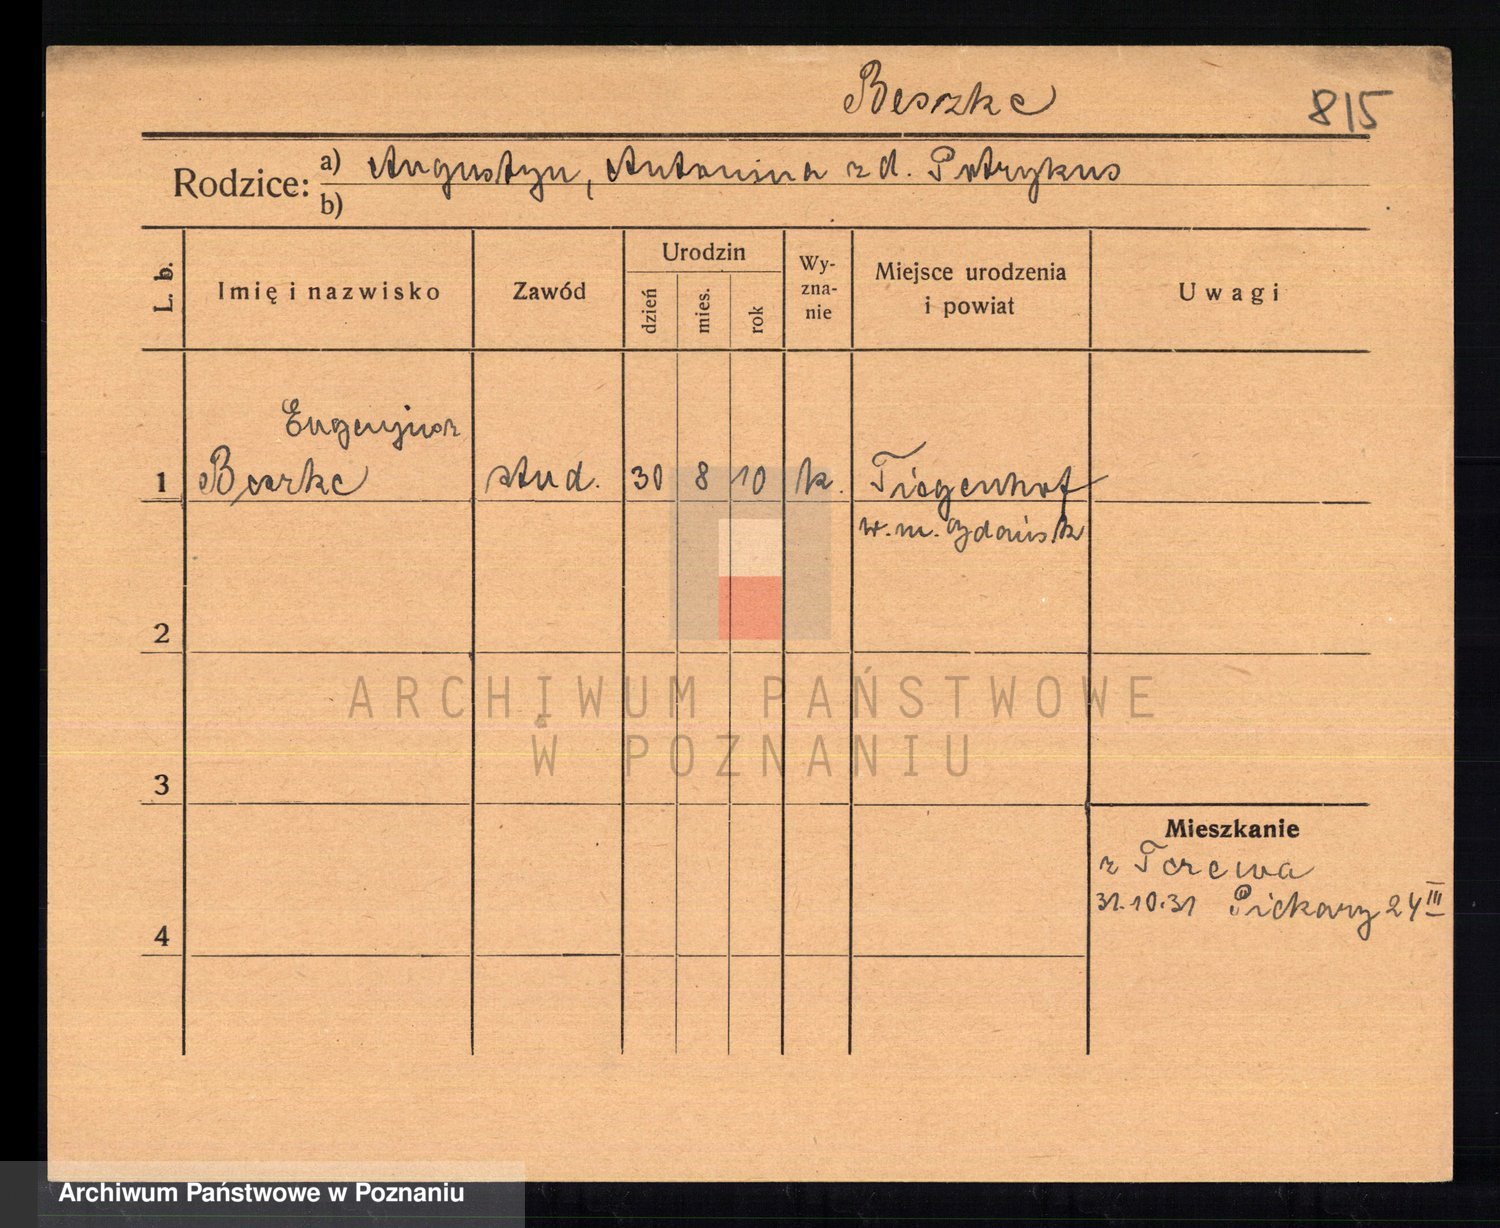 Beszke
815
Rodzice: a) Augustyn, Antonina z d. Potrykus
b)
L. b.
Imię i nazwisko
Zawód
Urodzin
dzień
mies.
rok
Wy-
zna-
nie
Miejsce urodzenia
i powiat
Uwagi
Eugenjusz
1 Beszke stud. 30 8 10 k. Tiegenhof
w. m. Gdańsk
2
3
4
Mieszkanie
z Tczewa
31.10.31 Piekary 24 III
ARCHIWUM PAŃSTWOWE
W POZNANIU
Archiwum Państwowe w Poznaniu